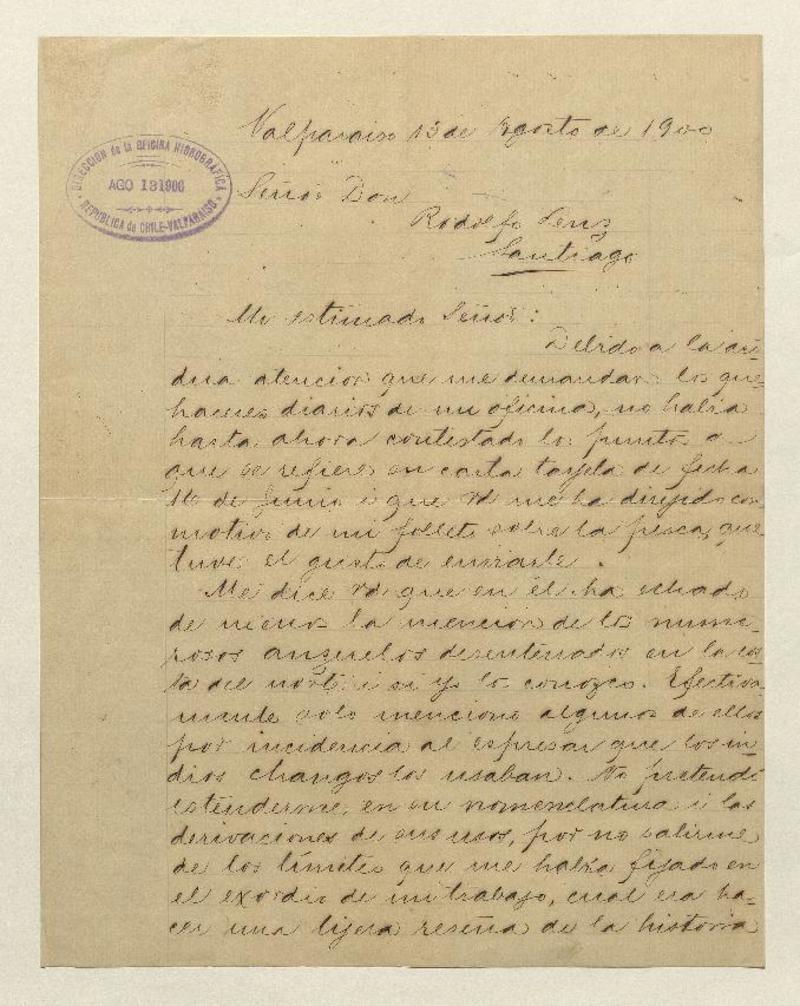 Valparaiso 13 de Agosto de 1900
DIRECCION de la OFICINA HIDROGRAFICA
AGO 13 1900
REPUBLICA de CHILE-VALPARAISO
Señor Don
Rodolfo Lenz
Santiago
Mi estimado Señor:
Debido a la ár-
dua atencion que me demandan los que-
haceres diarios de mi oficina, no habia
hasta ahora contestado los puntos a
que se refiere en carta tarjeta de fecha
16 de Junio i que Vd me ha dirijido con
motivo de mi folleto sobre la pesca, que
tuve el gusto de enviarle.
Me dice Vd que en él ha echado
de menos la mencion de los nume-
rosos anzuelos desenterrados en la cos-
ta del norte i si yo los conozco. Efectiva-
mente solo menciono algunos de ellos
por incidencia al espresar que los in-
dios changos los usaban. No pretendí
estenderme en su nomenclatura i las
derivaciones de sus usos, por no salirme
de los límites que me habia fijado en
el exordio de mi trabajo, cual era ha-
cer una lijera reseña de la historia